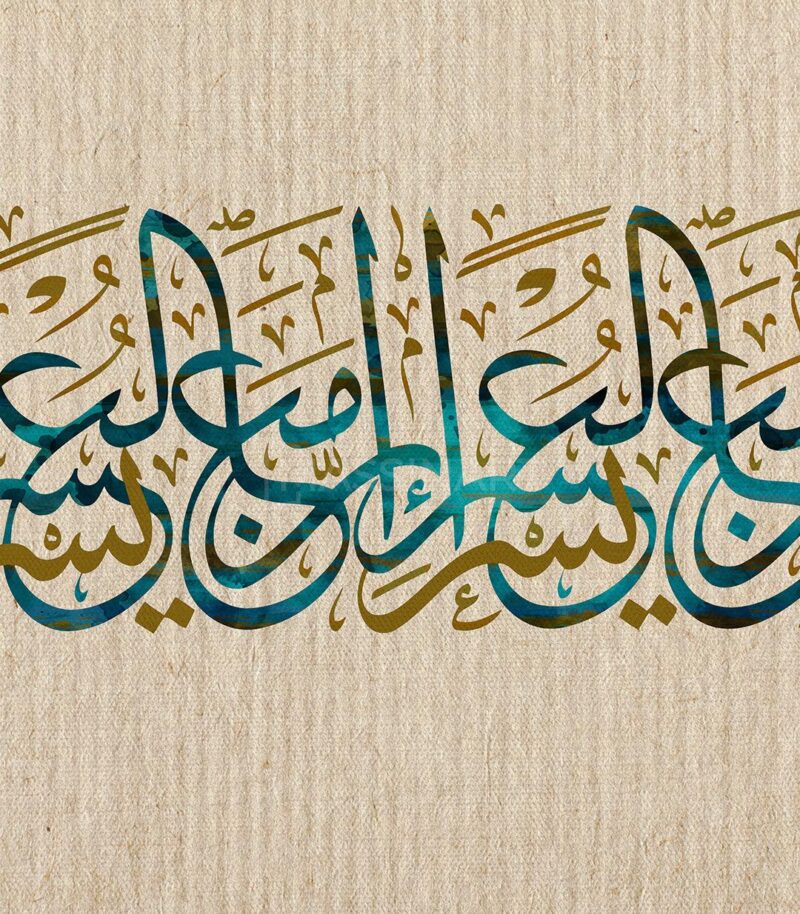 إِنَّ مَعَ الْعُسْرِ يُسْرًا إِنَّ مَعَ الْعُسْرِ يُسْرًا